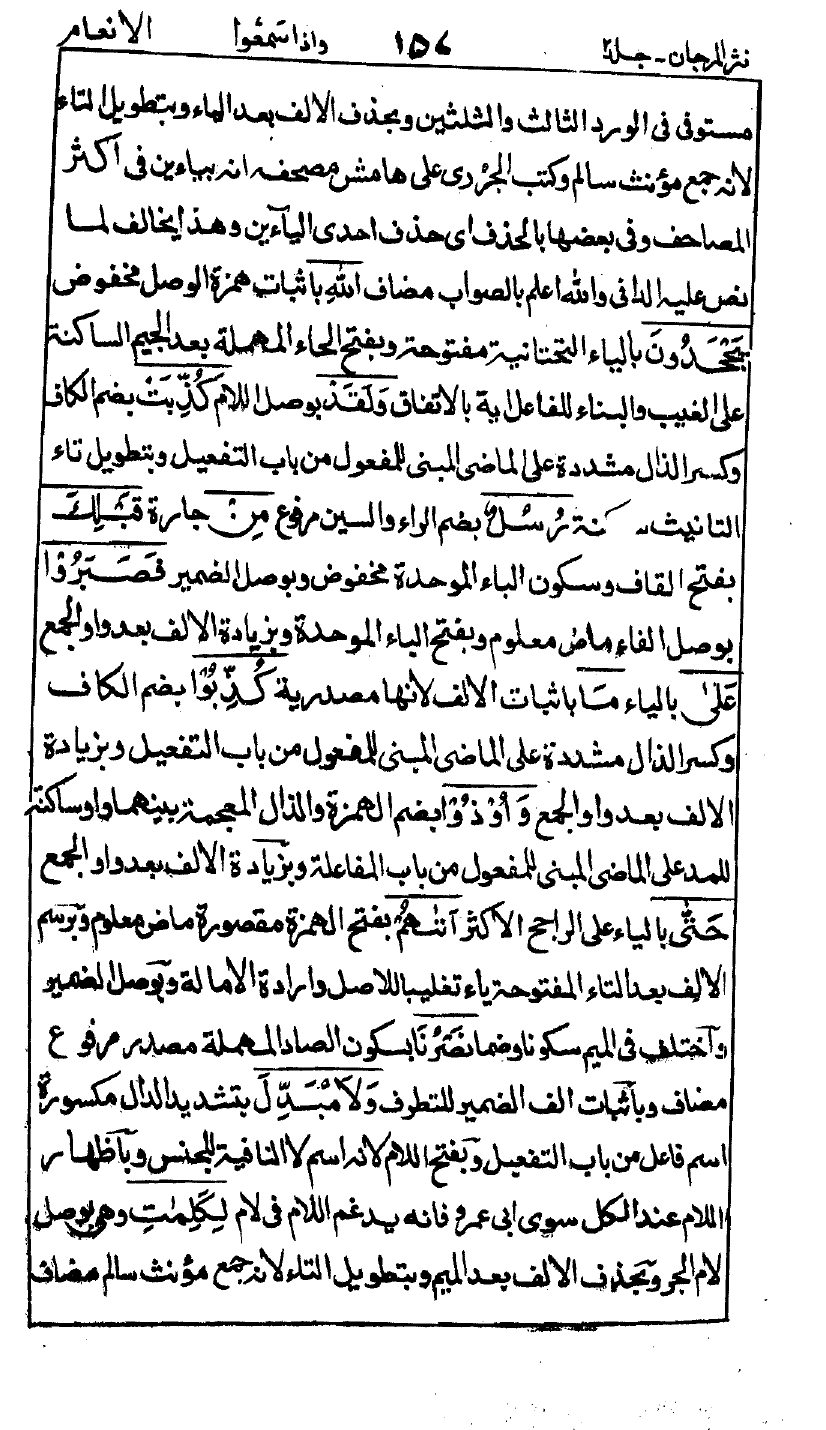 نثر المرجان - جلد ٢ ١٥٤ واذا سمعوا الانعام
مستوفى فى الورد الثالث والثلثين وبحذف الالف بعد الياء وبتطويل التاء
لانه جمع مؤنث سالم وكتب الجزرى على هامش مصحفه انه بياءين فى اكثر
المصاحف وفى بعضها بالحذف اى حذف احدى الياءين وهذا يخالف لما
نص عليه الدانى والله اعلم بالصواب مضاف اللهِ باثبات همزة الوصل مخفوض
يَجْحَدُونَ بالياء التحتانية مفتوحة وبفتح الحاء المهملة بعد الجيم الساكنة
على الغيب والبناء للفاعل اية بالاتفاق وَلَقَدْ بوصل اللام كُذِّبَتْ بضم الكاف
وكسر الذال مشددة على الماضى المبنى للمفعول من باب التفعيل وبتطويل تاء
التانيث كنة رُسُلٌ بضم الراء والسين مرفوع مِنْ جارة قَبْلِكَ
بفتح القاف وسكون الباء الموحدة مخفوض وبوصل الضمير فَصَبَرُوْا
بوصل الفاء ماض معلوم وبفتح الباء الموحدة وبزيادة الالف بعد واو الجمع
عَلىٰ بالياء مَا باثبات الالف لانها مصدرية كُذِّبُوْا بضم الكاف
وكسر الذال مشددة على الماضى المبنى للمفعول من باب التفعيل وبزيادة
الالف بعد واو الجمع وَاُوْذُوْا بضم الهمزة والذال المعجمة بينهما واو ساكنة
للمد على الماضى المبنى للمفعول من باب المفاعلة وبزيادة الالف بعد واو الجمع
حَتّٰى بالياء على الراجح الاكثر اَتٰىهُمْ بفتح الهمزة مقصورة ماض معلوم وبرسم
الالف بعد التاء المفتوحة ياء تغليبا للاصل وارادة الامالة وبوصل الضمير
واختلف فى الميم سكونا وضما نَصْرُنَا بسكون الصاد المهملة مصدر مرفوع
مضاف وباثبات الف الضمير للتطرف وَلَا مُبَدِّلَ بتشديد الدال مكسورة
اسم فاعل من باب التفعيل وبفتح اللام لانه اسم لا النافية للجنس وباظهار
اللام عند الكل سوى ابى عمرو فانه يدغم اللام فى لام لِكَلِمٰتِ وهى بوصل
لام الجر وبحذف الالف بعد الميم وبتطويل التاء لانه جمع مؤنث سالم مضاف